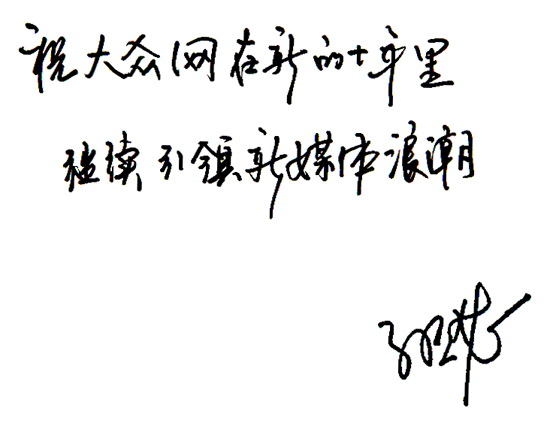 祝大众网在新的十年里
继续引领新媒体浪潮